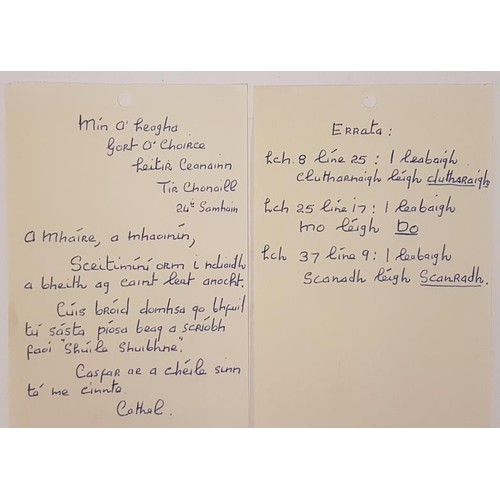 Mín a' Leogha
Gort a' Choirce
Leitir Ceanainn
Tír Chonaill
24ú Samhain
A Mháire, a mhaoinín,
Sceitimíní orm i ndiaidh
a bheith ag caint leat anocht.
Cúis bróid domhsa go bhfuil
tú sásta píosa beag a scríobh
faoi "Shúile Shuibhne".
Castar ar a chéile sinn
tá me cinnte
Cathal.
Errata:
Lch. 8 líne 25: I leabaigh
clutharnaigh léigh clutharaigh
Lch 25 líne 17: I leabaigh
mo léigh Do
Lch 37 líne 9: I leabaigh
Scanadh léigh Scanradh.